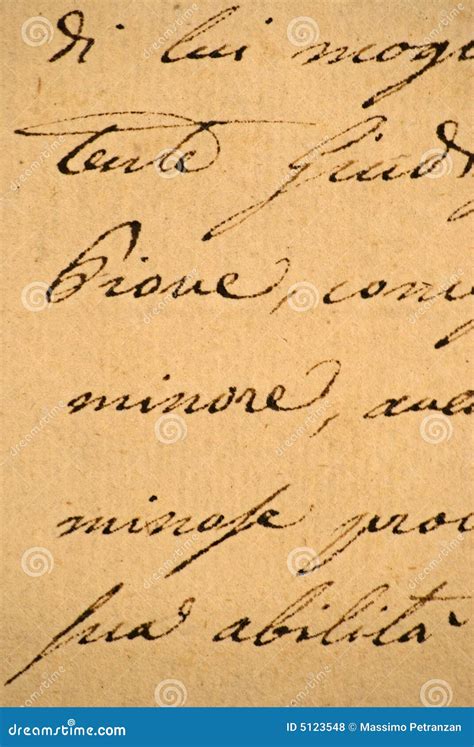 di lui mog
tente Giud
Piove, con
minore, ave
minase pro
sua abilità
dreamstime
ID 5123548 © Massimo Petranzan